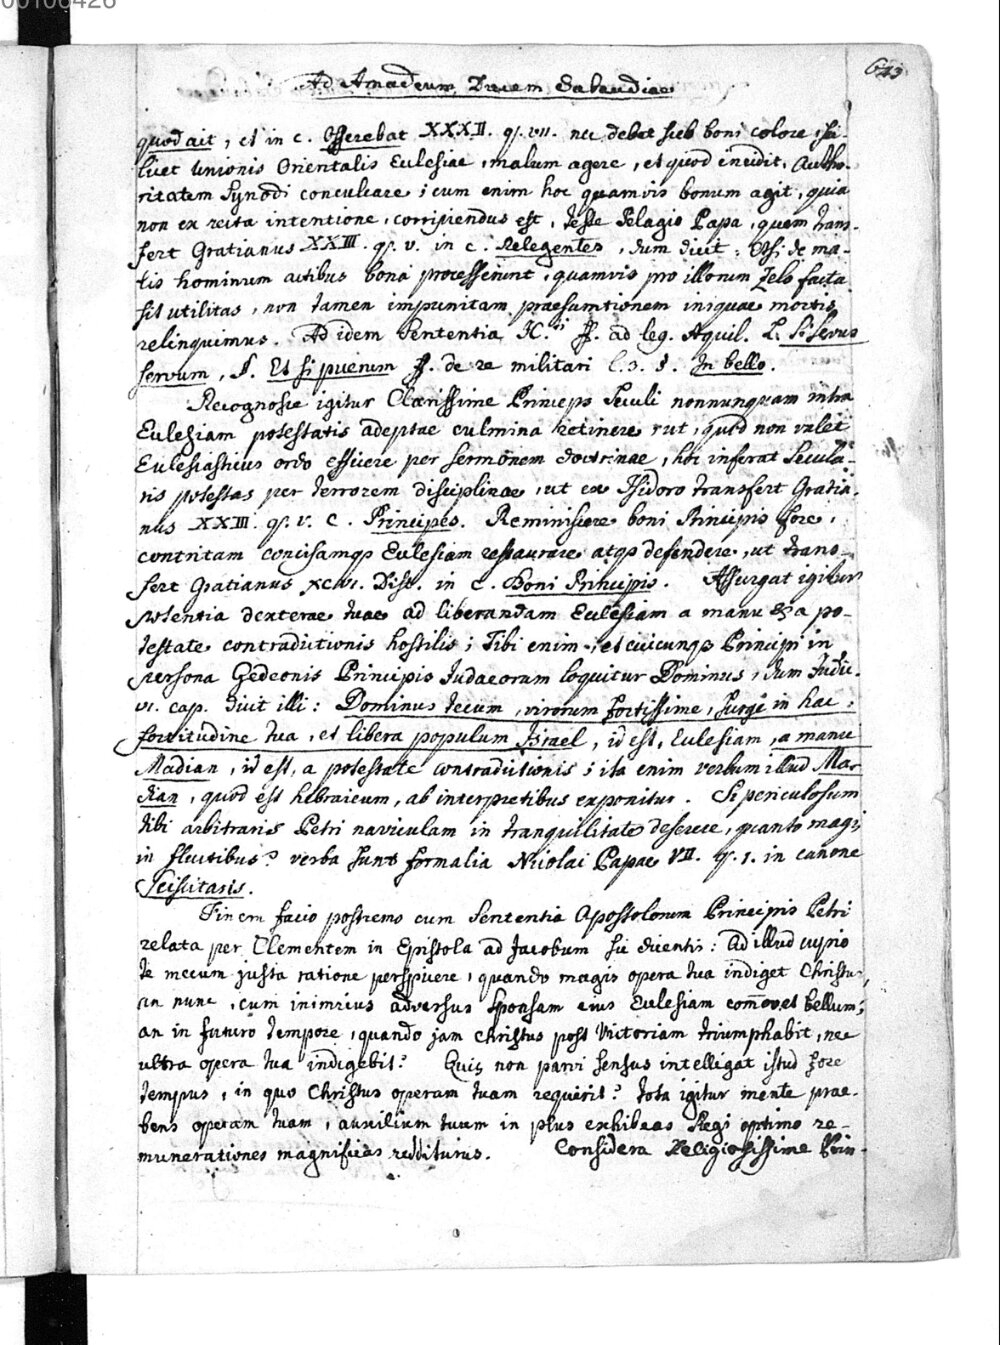 00106426
643
Ad Amadeum Ducem Sabaudiae
quod ait, et in c. Offerebat XXXII. q. VII. nec debet sub boni colore, sci-
licet unionis Orientalis Eulesiae, malum agere, et quod incidit, Autho-
ritatem Synodi conculcare; cum enim hoc quamvis bonum agit, quia
non ex recta intentione, corripiendus est, teste Pelagio Papa, quem trans-
fert Gratianus XXIII. q. V. in c. Relegentes, dum dicit: Etsi de ma-
lis hominum actibus bona processerint, quamvis pro illorum zelo facta
sit utilitas, non tamen impunitam praesumtionem iniquae mortis
relinquimus. Ad idem Sententia ff. ad leg. Aquil. L. Si Servus
servum, §. Et si puerum ff. de re militari l. 3. §. In bello.
Recognosce igitur Clarissime Princeps Seculi nonnunquam intra
Eulesiam potestatis adeptae culmina retinere, ut, quod non valet
Eulesiasticus ordo efficere per sermonem doctrinae, hoc inferat Secula-
ris potestas per terrorem disciplinae, ut ex Isidoro transfert Gratia-
nus XXIII. q. V. c. Principes. Reminiscere boni Principis fore,
contritam concisamq; Eulesiam restaurare atq; defendere, ut trans-
fert Gratianus XCVI. Dist. in c. Boni Principis. Assurgat igitur
potentia dexterae tuae ad liberandam Eulesiam a manu & a po-
testate contradictionis hostilis; Tibi enim, et cuicunq; Principi in
persona Gedeonis Principis Judaeorum loquitur Dominus, dum Judic.
VI. cap. dicit illi: Dominus tecum, virorum fortissime, surge in hac
fortitudine tua, et libera populum Israel, id est, Eulesiam, a manu
Madian, id est, a potestate contradictionis; ita enim verbum illud Ma-
dian, quod est hebraicum, ab interpretibus exponitur. Si periculosum
tibi arbitraris Petri naviculam in tranquillitate deserere, quanto magis
in fluctibus? verba sunt formalia Nicolai Papae VII. q. 1. in canone
Sciscitaris.
Finem facio postremo cum Sententia Apostolorum Principis Petri
relata per Clementem in Epistola ad Jacobum sic dicentis: Ad illud cupio
te mecum justa ratione perspicere, quando magis opera tua indiget Christus,
an nunc, cum inimicus adversus Sponsam eius Eulesiam com̄ovet bellum;
an in futuro tempore, quando jam Christus post Victoriam triumphabit, nec
ultra opera tua indigebit? Quis non parvi sensus intelligat istud fore
tempus, in quo Christus operam tuam requirit? tota igitur mente prae-
bens operam tuam, auxilium tuum in plus exhibeas Regi optimo re-
munerationes magnificas redditurus. Considera Religiosissime Prin-